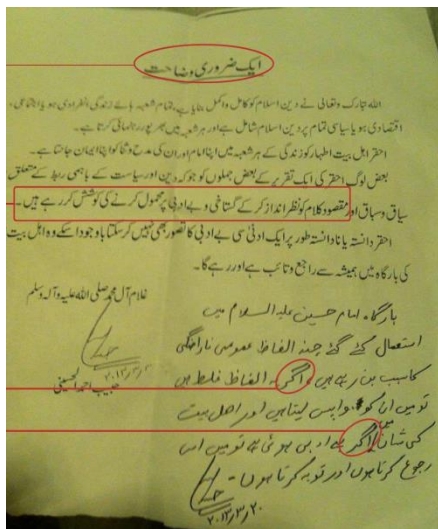 ایک ضروری وضاحت
اللہ تبارک وتعالیٰ نے دین اسلام کو کامل واکمل بنایا ہے، تمام شعبہ ہائے زندگی انفرادی ہو یا اجتماعی،
اقتصادی ہو یا سیاسی تمام پر دین اسلام شامل ہے اور ہر شعبہ میں بھرپور رہنمائی کرتا ہے۔
احقر اہل بیت اطہار کو زندگی کے ہر شعبہ میں اپنا امام اور ان کی مدح وثنا کو اپنا ایمان جانتا ہے۔
بعض لوگ احقر کی ایک تقریر کے بعض جملوں کو جو کہ دین اور سیاست کے باہمی ربط کے متعلق
سیاق وسباق اور مقصود کلام کو نظر انداز کر کے گستاخی و بے ادبی پر محمول کرنے کی کوشش کر رہے ہیں۔
احقر دانستہ یا نادانستہ طور پر ایک ادنیٰ سی بے ادبی کا تصور بھی نہیں کر سکتا باوجود اسکے وہ اہل بیت
کی بارگاہ میں ہمیشہ سے راجع و تائب ہے اور رہے گا۔
غلام آل محمد صلی اللہ علیہ وآلہ وسلم
حبیب احمد الحسینی
بارگاہ امام حسین علیہ السلام میں
استعمال کئے گئے چند الفاظ عمومی ناراضگی
کا سبب بن رہے ہیں اگر یہ الفاظ غلط ہیں
تو میں ان کو واپس لیتا ہوں اور اہل بیت
کی شان میں اگر بے ادبی ہوئی ہے تو میں اس
رجوع کرتا ہوں اور توبہ کرتا ہوں۔
۲۰۱۳/۳/۲۰